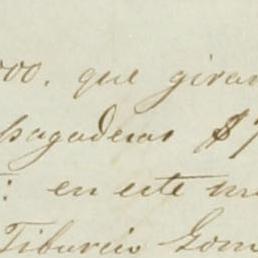 000. que giran
pagaderas $7
: en este m
Tiburcio Gom